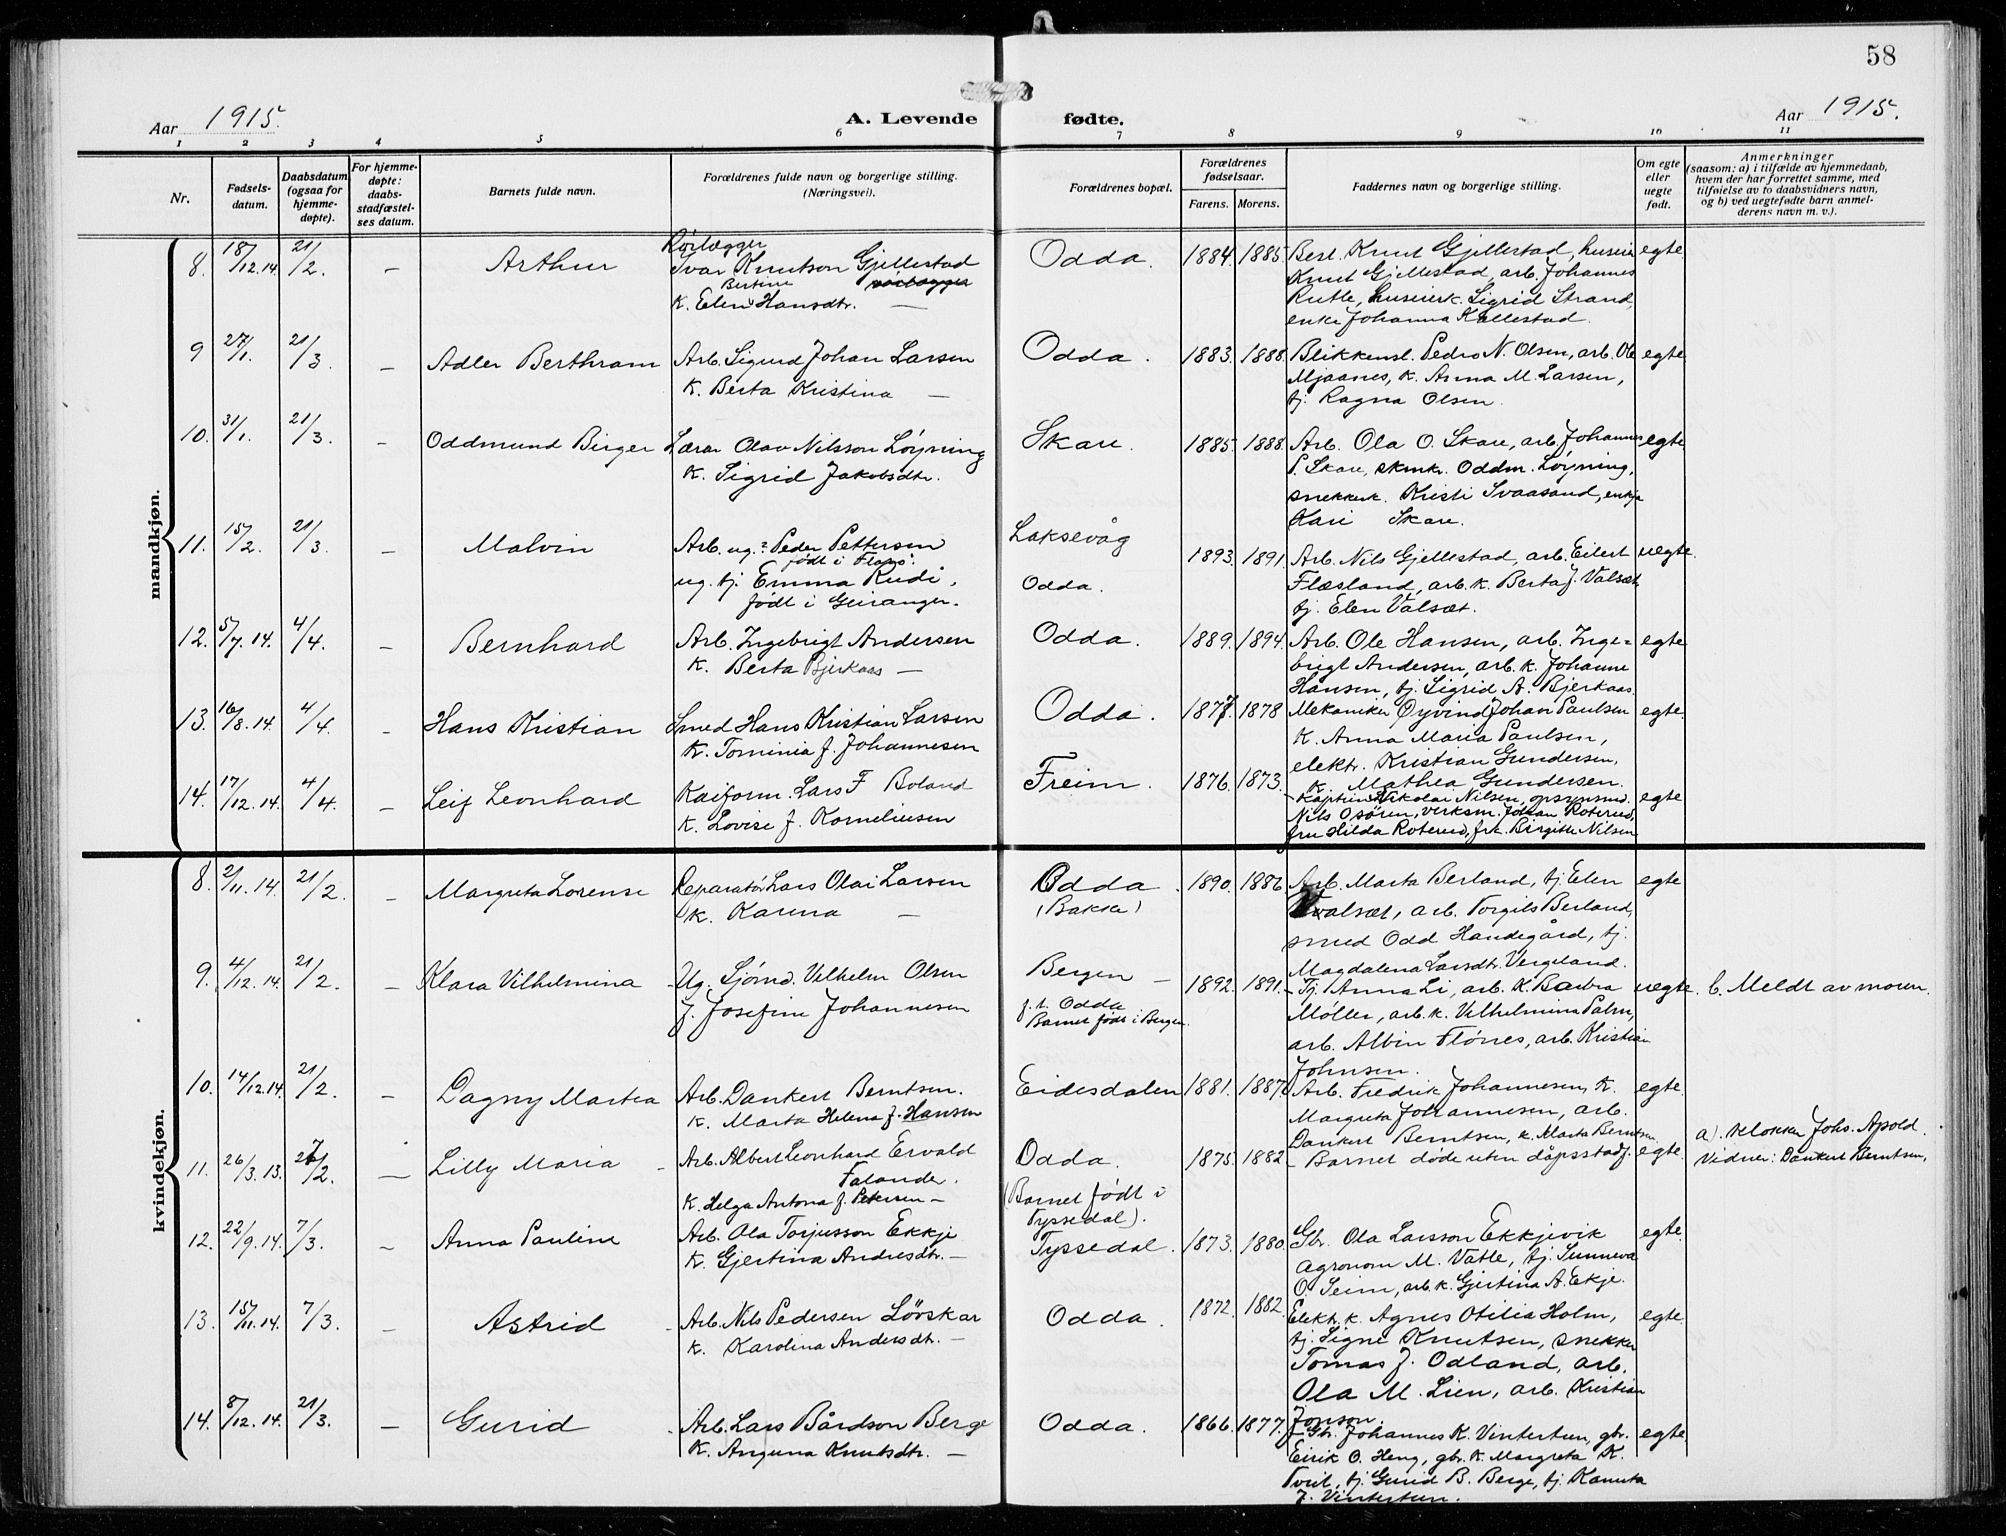 58
Aar 1915.
A. Levende fødte.
Aar 1915.
1 2 3 4 5 6 7 8 9 10 11
Nr.
Fødsels-
datum.
Daabsdatum
(ogsaa for
hjemme-
døpte).
For hjemme-
døpte:
daabs-
stadfæstel-
ses datum.
Barnets fulde navn.
Forældrenes fulde navn og borgerlige stilling.
(Næringsvei).
Forældrenes bopæl.
Forældrenes
fødselsaar.
Farens. Morens.
Faddernes navn og borgerlig stilling.
Om egte
eller
uegte
født.
Anmerkninger
(saasom: a) i tilfælde av hjemmedaab,
hvem der har forrettet samme, med
tilføielse av to daabsvidners navn,
og b) ved uegtefødte barn anmel-
derens navn m. v.).
mandkjøn.
8. 18/12.14. 21/2. – Arthur
Rørlægger
Ivar Knutson Gjellestad
Bertine rørlægger
k. Elen Hansdtr. —
Odda. 1884. 1885.
Bert. Knut Gjellestad, huseier
Knut Gjellestad, arb. Johannes
Rutle, huseierk. Sigrid Strand,
enke Johanna Kallestad.
egte.
9 27/1. 21/3. – Adler Berthram
Arb. Sigurd Johan Larsen
k. Berta Kristina —
Odda. 1883. 1888.
Blikkensl. Pedro N. Olsen, arb. Ole
Mjaanes, k. Anna M. Larsen,
tj. Ragna Olsen.
egte.
10. 31/1. 21/3. – Oddmund Birger
Lærar Olav Nilsson Løyning
k. Sigrid Jakobsdtr.
Skare. 1885. 1888.
Arb. Ola O. Skare, arb. Johannes
P. Skare, Oddm. Løyning,
snekkerk. Kristi Svaasand, enkja
Kari Skare.
egte.
11. 15/2. 21/3. – Malvin
Arb. ug. Peder Pettersen
født i
ug. tj. Emma Rudi,
født i Geiranger.
Laksevåg
Odda. 1893. 1891.
Arb. Nils Gjellestad, arb. Eilert
Flæsland, arb. k. Berta J. Valsæt,
tj. Elen Valsæt.
uegte.
12. 5/7. 14. 4/4. – Bernhard
Arb. Ingebrigt Andersen
k. Berta Bjerkaas —
Odda. 1889. 1894.
Arb. Ole Hansen, arb. Inge=
brigt Andersen, arb. k. Johanne
Hansen, tj. Sigrid A. Bjerkaas.
egte
13. 16/8. 14. 4/4. – Hans Kristian
Smed Hans Kristian Larsen
k. Tominia f. Johannesen
Odda. 1877. 1878
Mekaniker Øyvind Johan Paulsen
k. Anna Maria Paulsen,
elektr. Kristian Gundersen,
k. Mathea Gundersen.
egte.
14. 17/12. 14. 4/4. – Leif Leonhard
Kaiform. Lars F Boland
k. Lovise f. Korneliusen
Freim. 1876. 1873.
– Kaptein Nikolai Nilsen, opsynsmd.
Nils Osøren, verksm. Johan Roterud,
fru Hilda Roterud, frk. Birgitte Nilsen
egte
kvindekjøn.
8. 2/11. 14. 21/2. – Margreta Lorense
Reparatør Lars Olai Larsen
k. Karina —
Odda.
(Bakke) 1890. 1886.
Arb. Marta Berland, tj. Elen
Valsæt, arb. Torgils Berland,
smed Odd Handegård, tj.
Magdalena Larsdtr. Vergeland.
egte
9. 4/12. 14. 21/2. – Klara Vilhelmina
Ug. Sjømd. Vilhelm Olsen
f. Josefine Johannesen
Bergen —
f. t. Odda
Barnet født i Bergen. 1892. 1891.
– Tj. Anna Li, arb. k. Barbra
Møller, arb. k. Vilhelmina Palm,
arb. Albin Flønes, arb. Kristian
Johnsen.
uegte. b. Meldt av moren.
10. 14/12.14. 21/2. – Dagny Martea
Arb. Dankert Berntsen.
k. Marta Helena f. Hansen
Eidesdalen 1881. 1887.
Arb. Fredrik Johannesen, k.
Margreta Johannesen, arb.
Dankert Berntsen, k. Marta Berntsen
egte.
11. 26/3. 13. 7/2. – Lilly Maria
Arb. Albert Leonhard Ervald
Falander.
k. Helga Antona f. Petersen –
Odda.
(Barnet født i
Tyssedal). 1875. 1882.
– Barnet døde uten dåpsstadf.
egte.
a). Klokker Johs. Apold.
Vidner: Dankert Berntsen,
12. 22/9. 14. 7/3. – Anna Pauline
Arb. Ola Torjusson Ekkje
k. Gjertina Andresdtr. –
Tyssedal. 1873. 1880.
Gbr. Ola Larsson Ekkjevik
agronom M. Vatle, tj. Sunneva
O. Seim, arb. k. Gjertina A. Ekje.
egte.
13. 15/11. 14. 7/3. – Astrid
Arb. Nils Pedersen Løvskar
k. Karolina Andersdtr. –
Odda. 1872. 1882.
Elektr. k. Agnes Otilia Holm,
tj. Signe Knutsen, snekker
Tomas J. Odland, arb.
Ola M. Lien, arb. Kristian
Jonson.
egte.
14. 8/12. 14. 21/3. – Gurid
Arb. Lars Bårdson Berge
k. Anguna Knutsdtr. –
Odda. 1866. 1877.
Gbr. Johannes K. Vintertun, gbr.
Eirik O. Heng, gbr. k. Margreta K.
Tveit, tj. Gurid B. Berge, tj. Kanuta
J. Vintertun.
egte.